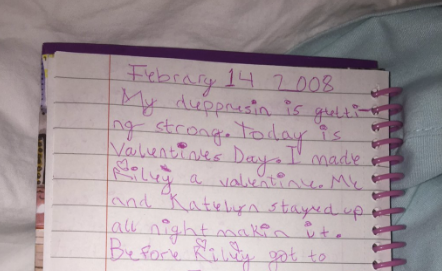 Febrary 14 2008
My duppresin is gutti-
ng strong. Today is
Valuentines Day. I made
Riluy a valuentine. Me
and Katelyn stayed up
all night makin it.
Before Riluy got to